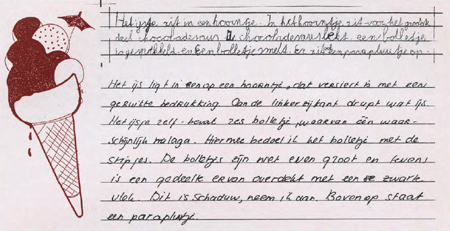 Het ijsje zit in een hoorntje. In het hoorntje zit voor het grootste
deel chocoladesaus
is gespikkeld en een bolletje smelt. Er zit een parapluutje op.
Het ijs ligt in een op een hoorntje, dat versierd is met een
geruite bedrukking. Aan de linkerzijkant drupt wat ijs.
Het ijsje zelf bevat zes bolletjes, waarvan één waar-
schijnlijk malaga. Hiermee bedoel ik het bolletje met de
stipjes. De bolletjes zijn niet even groot en tevens
is een gedeelte ervan overdekt met een zwarte
vlek. Dit is schaduw, neem ik aan. Bovenop staat
een parapluutje.